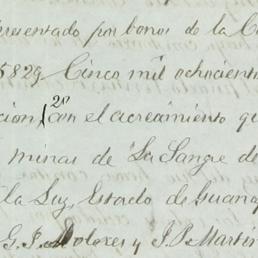 presentado por bonos de la C
5829 Cinco mil ochocient
cion, 2º con el acreamiento qu
minas de "La Sangre de
la Luz, Estado de Guana
G. J. Dolores y J. P. Martin